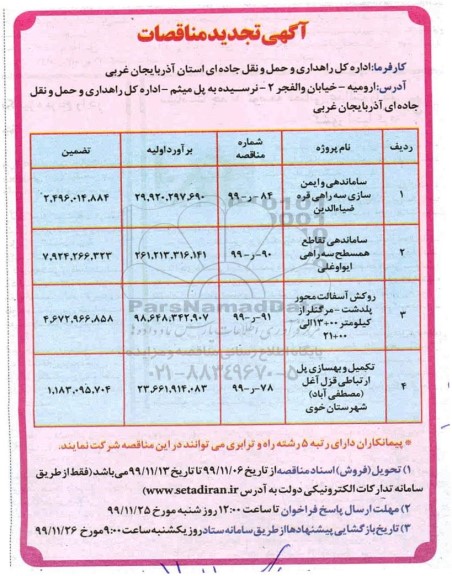 آگهی تجدید مناقصات
کارفرما: اداره کل راهداری و حمل و نقل جاده ای استان آذربایجان غربی
آدرس: ارومیه - خیابان والفجر ۲ - نرسیده به پل میثم - اداره کل راهداری و حمل و نقل
جاده ای آذربایجان غربی
ردیف نام پروژه شماره مناقصه برآورد اولیه تضمین
۱ ساماندهی و ایمن سازی سه راهی قره ضیاءالدین ۸۴-ر-۹۹ ۲۹,۹۲۰,۲۹۷,۶۹۰ ۲,۴۹۶,۰۱۴,۸۸۴
۲ ساماندهی تقاطع همسطح سه راهی ایواوغلی ۹۰-ر-۹۹ ۲۶۱,۲۱۳,۳۱۶,۱۴۱ ۷,۹۲۴,۲۶۶,۳۲۳
۳ روکش آسفالت محور پلدشت - مرگنلر از کیلومتر ۱۳+۰۰۰ الی ۲۱+۰۰۰ ۹۱-ر-۹۹ ۹۸,۶۴۸,۳۴۲,۹۰۷ ۴,۶۷۲,۹۶۶,۸۵۸
۴ تکمیل و بهسازی پل ارتباطی قزل آغل (مصطفی آباد) شهرستان خوی ۷۸-ر-۹۹ ۲۳,۶۶۱,۹۱۴,۰۸۳ ۱,۱۸۳,۰۹۵,۷۰۴
ParsNamadData
پایگاه اطلاع رسانی مناقصه و مزایده
۰۲۱-۸۸۳۴۹۶۷۰-۵
* پیمانکاران دارای رتبه ۵ رشته راه و ترابری می توانند در این مناقصه شرکت نمایند.
۱) تحویل (فروش) اسناد مناقصه از تاریخ ۹۹/۱۱/۰۶ تا تاریخ ۹۹/۱۱/۱۳ می باشد (فقط از طریق
سامانه تدارکات الکترونیکی دولت به آدرس www.setadiran.ir)
۲) مهلت ارسال پاسخ فراخوان تا ساعت ۱۲:۰۰ روز شنبه مورخ ۹۹/۱۱/۲۵
۳) تاریخ بازگشایی پیشنهادها از طریق سامانه ستاد روز یکشنبه ساعت ۹:۰۰ مورخ ۹۹/۱۱/۲۶